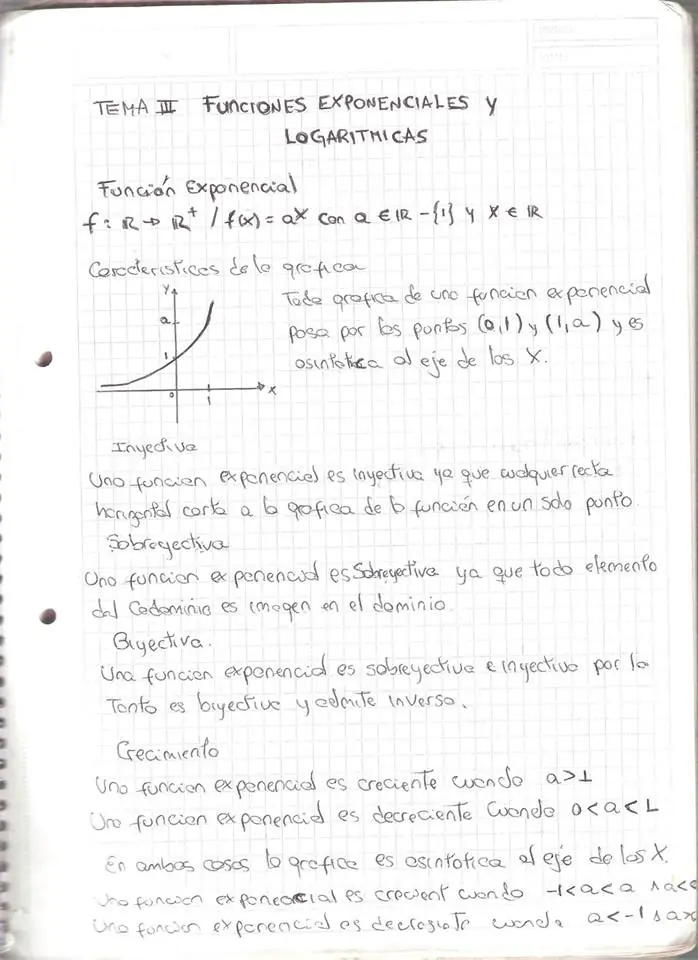 TEMA III FUNCIONES EXPONENCIALES Y
LOGARITMICAS
Función Exponencial
f: ℝ → ℝ⁺ / f(x) = aˣ con a ∈ ℝ - {1} y x ∈ ℝ
Caracteristicas de la grafica
Y
a
1
0
1
X
Toda grafica de una funcion exponencial
pasa por los puntos (0,1) y (1,a) y es
asintotica al eje de los X.
Inyectiva
Una funcion exponencial es inyectiva ya que cualquier recta
horizontal corta a la grafica de la función en un solo punto.
Sobreyectiva
Una funcion exponencial es Sobreyectiva ya que todo elemento
del Codominio es imagen en el dominio.
Biyectiva.
Una funcion exponencial es sobreyectiva e inyectiva por lo
Tanto es biyectiva y admite inversa.
Crecimiento
Una funcion exponencial es creciente cuando a>1
Una funcion exponencial es decreciente Cuando 0<a<1
En ambos casos la grafica es asintotica al eje de los X.
Una funcion exponencial es crecient cuando -1<a<a ∧ a<
Una funcion exponencial es cuando a<-1 ∧ a